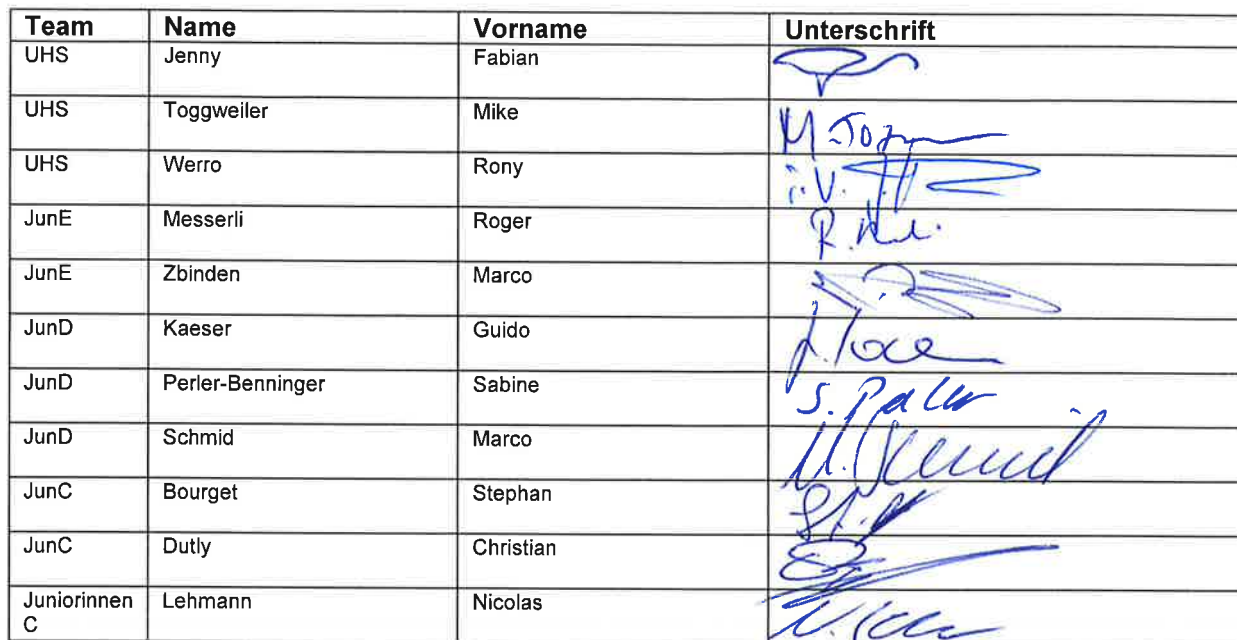 Team Name Vorname Unterschrift
UHS Jenny Fabian
UHS Toggweiler Mike
UHS Werro Rony i.V.
JunE Messerli Roger
JunE Zbinden Marco
JunD Kaeser Guido
JunD Perler-Benninger Sabine S. Perler
JunD Schmid Marco M. Schmid
JunC Bourget Stephan
JunC Dutly Christian
Juniorinnen Lehmann Nicolas
C